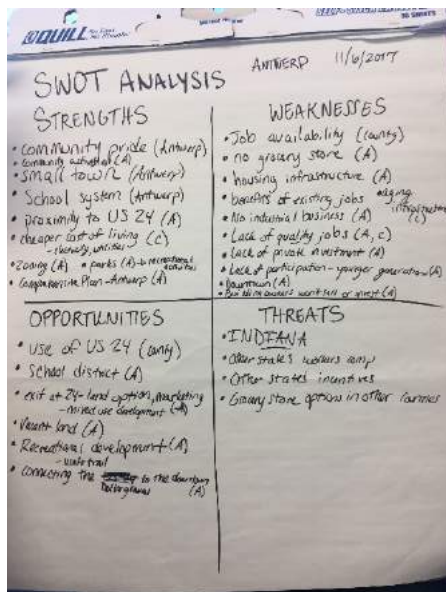 QUILL
SWOT ANALYSIS
ANTWERP 11/6/2017
STRENGTHS
• community pride (Antwerp)
• community activation (A)
• small town (Antwerp)
• School system (Antwerp)
• proximity to US 24 (A)
• cheaper cost of living (C)
utilities
• Zoning (A) • parks (A) → recreational activities
• Comprehensive Plan - Antwerp (A)
WEAKNESSES
• Job availability (county)
• no grocery store (A)
• housing infrastructure (A)
• benefits of existing jobs
• aging infrastructure (C)
• No industrial business (A)
• Lack of quality jobs (A, C)
• Lack of private investment (A)
• Lack of participation - younger generation (A)
• Downtown (A)
• Building owners won't sell or invest (A)
OPPORTUNITIES
• Use of US 24 (county)
• School district (A)
• exit at 24 - land option, marketing
- mixed use development (A)
• Vacant land (A)
• Recreational development (A)
- trail
• connecting the to the downtown
Dollar General (A)
THREATS
• INDIANA
• Other states workers comp
• Other states incentives
• Grocery store options in other counties